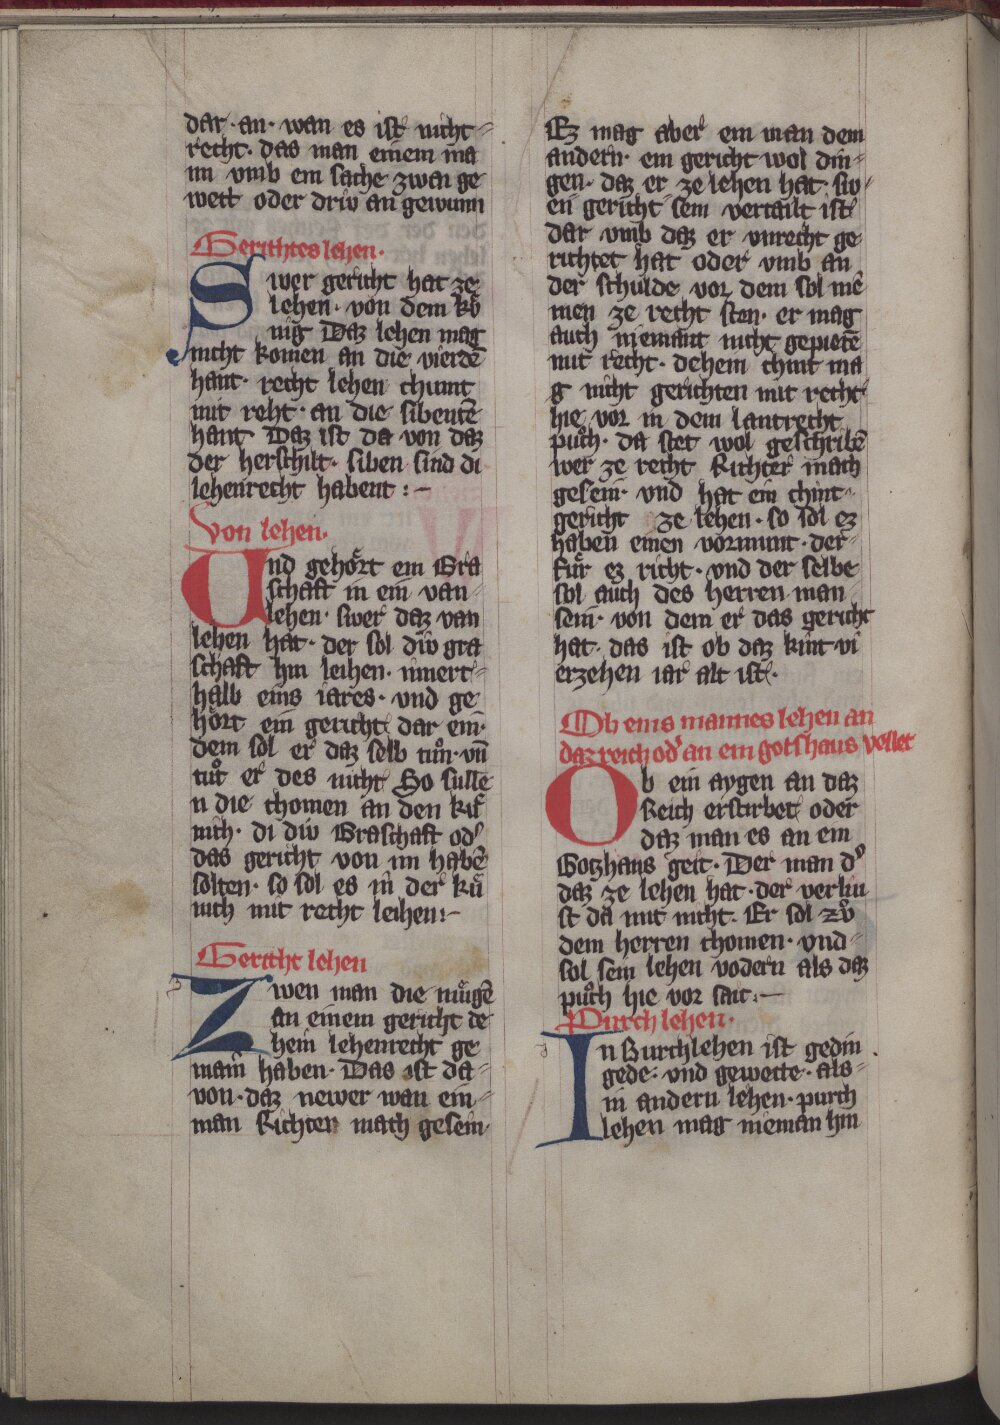 dar · an · wan es ist nicht-
recht · das man einem ma
nn vmb ein sache zwai ge
wett oder driv an gewunn
Gerichtes lehen ·
Swer gericht hat ze
lehen · von dem ků
nig Daz lehen mag
nicht komen an die vierdē
hant · recht lehen chumt
mit reht · an die sibentē
hant Daz ist da von daz
der herschilt · siben sind di
lehenrecht habent :-
Von lehen ·
Und gehört ein Gra
schaft in ein van-
lehen · swer daz van
lehen hat · der sol div gra
schaft hin leihen · innert-
halb eins iares · vnd ge
hört ein gericht dar ein ·
dem sol er daz selb tůn · vn̄
tůt er des nicht So sulle
n die chomen an den ků
nich · di div Graschaft od̛
das gericht von im habē
solten · so sol es in der ků
nich mit recht leihen :-
Gericht lehen
Zwen man die můgē
an einem gericht de
hein lehenrecht ge
main haben · Das ist da-
von · daz newer wan ein-
man Richter mach gesein ·
Ez mag aber ein man dem
andern · ein gericht wol din-
gen · daz er ze lehen hat · sw-
en gericht sein vertailt ist
dar vmb daz er vnrecht ge
richtet hat oder vmb an
der schulde vor dem sol nie
men ze recht sten · er mag
auch niemant nicht gepietē
mit recht · dehein chint ma
g nicht gerichten mit recht
hie vor in dem lantrecht
půch · da stet wol geschribē
wer ze recht Richter mach
gesein · vnd hat ein chint-
gericht ze lehen · so sol ez
haben einen vormunt · der-
für ez richt · vnd der selbe
sol auch des herren man
sein · von dem er das gericht
hat · das ist ob daz kint vi
erzehen iar alt ist ·
Ob eins mannes lehen an
daz reich od̛ an ein gotshaus vellet
Ob ein aygen an daz
Reich erstirbet oder
daz man es an ein
Gotzhaus geit · Der man d̛
daz ze lehen hat · der verliu
st da mit nicht · Er sol zů
dem herren chomen · vnd-
sol sein lehen vodern als daz
půch hie vor sait :-
Purch lehen ·
In Burchlehen ist gedin
gede · vnd gewette · als-
in andern lehen · purch
lehen mag nieman hin